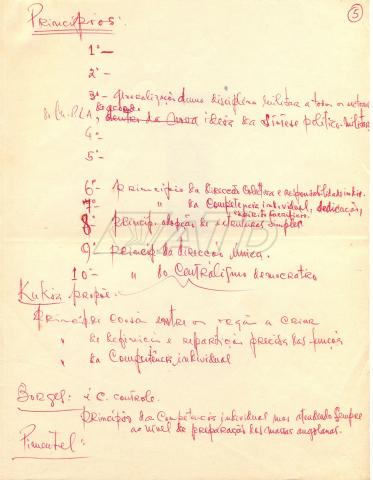 5
Princípios:
1º —
2º —
3º — Generalização duma disciplina militar a todos os sectores
do MPLA, dentro da nossa ideia da síntese político-militar
4º —
5º —
6º — Princípio da Direcção Colectiva e responsabilidade indiv.
7º — " da Competência individual, dedicação,
espírito sacrifício.
8º — Princíp. adopção de estruturas simples
9º — Princíp. da direcção única.
10º — " do Centralismo democrático
ATD
propõe:
Princípio entre os a criar
" de definição e repartição precisa das funções
" da Competência individual
Borgel: é C. controle.
Princípio da Competência individual mas atendendo sempre
ao nível de preparação das massas angolanas.
Pimentel: